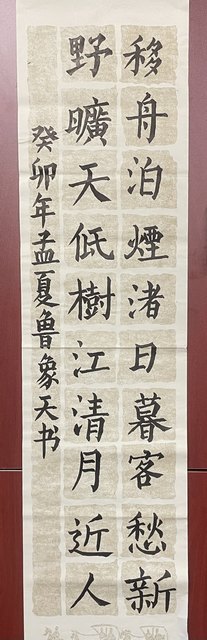 移舟泊煙渚日暮客愁新
野曠天低樹江清月近人
癸卯年孟夏鲁象天书